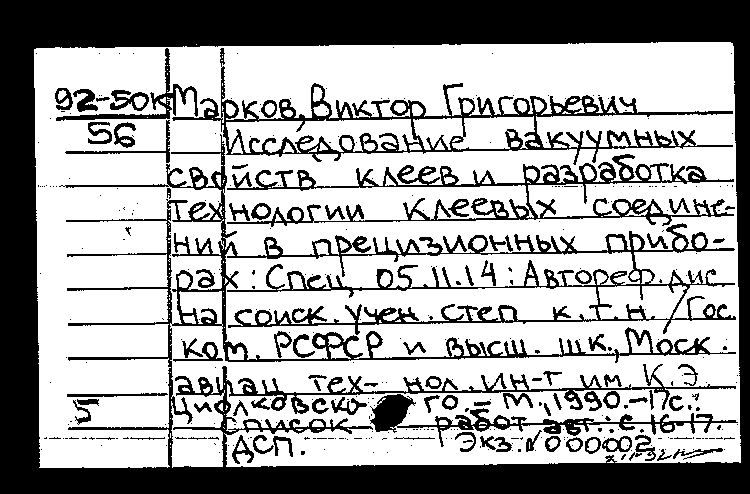 92-50к Марков, Виктор Григорьевич
56 Исследование вакуумных
свойств клеев и разработка
технологии клеевых соедине-
ний в прецизионных прибо-
рах: Спец. 05.11.14: Автореф. дис
на соиск. учен. степ к.т.н. / Гос.
ком. РСФСР и высш. шк., Моск.
авиац. тех- нол. ин-т им. К.Э.
5 Циолковско го. - М., 1990. - 17с.:
список работ авт.: с. 16-17.
ДСП. Экз. N 000002